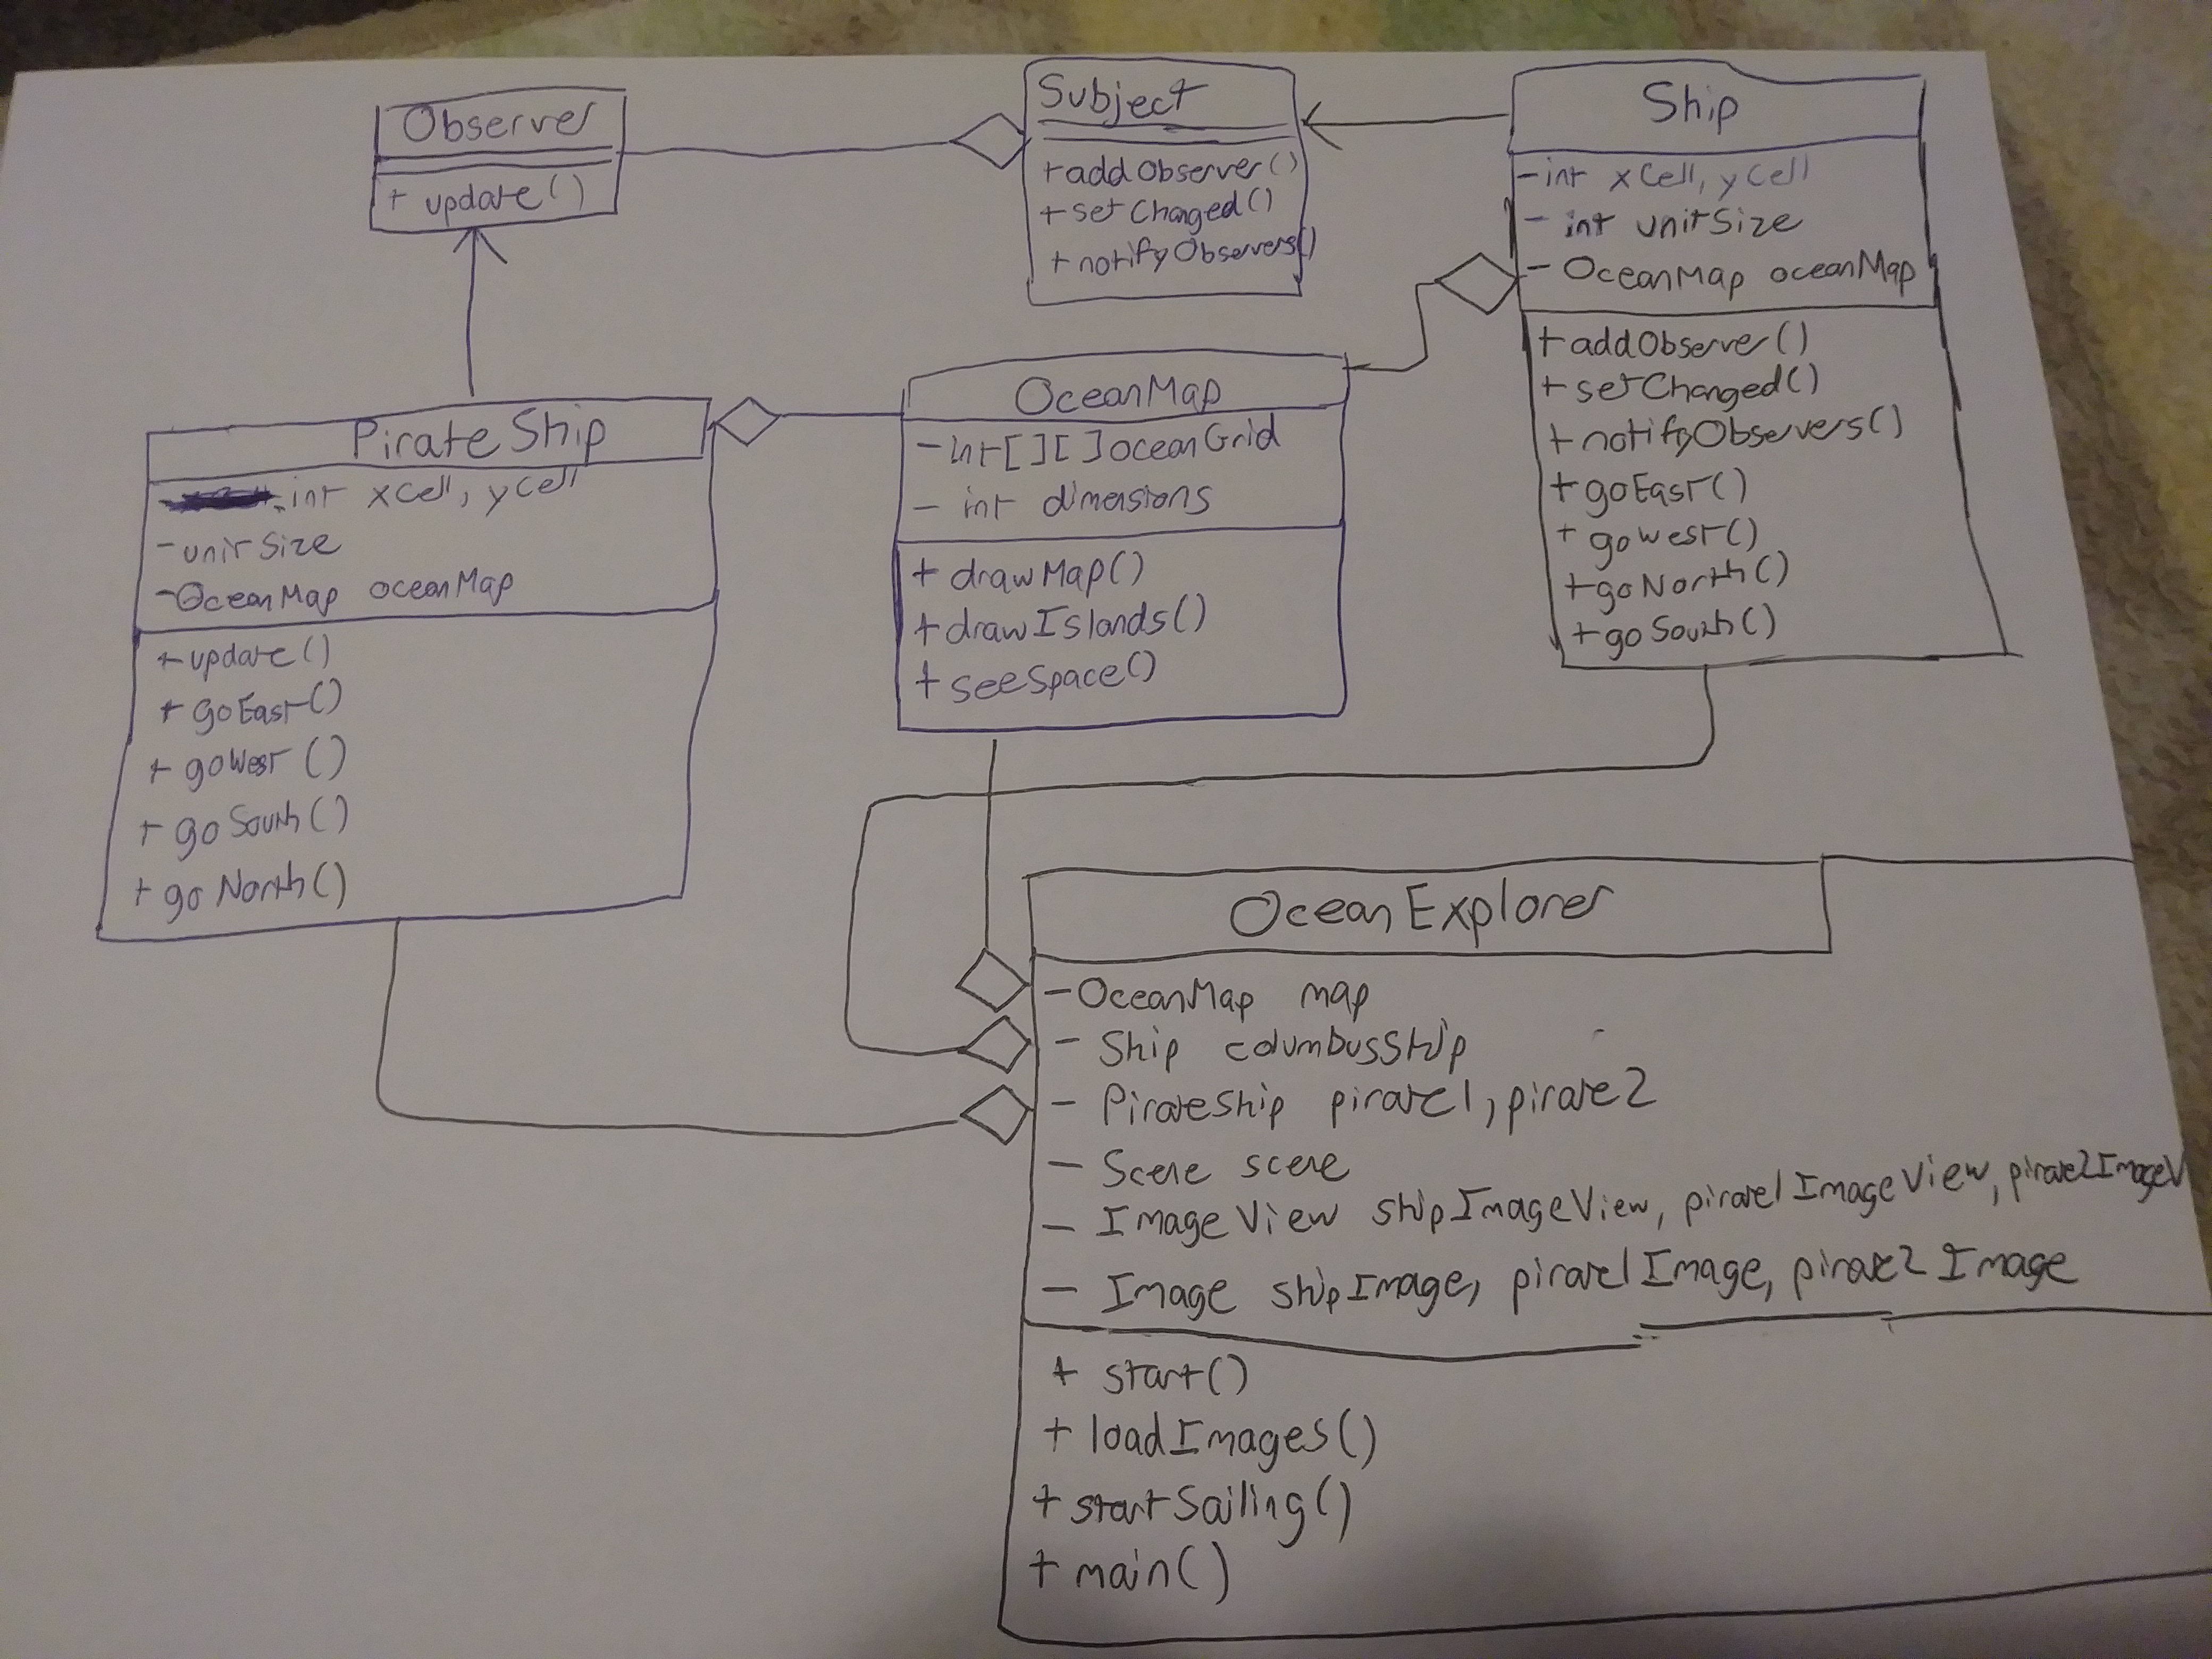 Observer
+ update()
Subject
+addObserver()
+setChanged()
+notifyObservers()
Ship
-int xCell, yCell
- int unitSize
- OceanMap oceanMap
+addObserver()
+setChanged()
+notifyObservers()
+goEast()
+goWest()
+goNorth()
+goSouth()
PirateShip
- int xCell, yCell
-unitSize
-OceanMap oceanMap
+update()
+ goEast()
+ goWest ()
+ goSouth()
+ goNorth()
OceanMap
-int[][]oceanGrid
- int dimensions
+ drawMap()
+drawIslands()
+ seeSpace()
OceanExplorer
-OceanMap map
- Ship columbusShip
- PirateShip pirate1, pirate2
- Scene scene
- ImageView shipImageView, pirate1ImageView, pirate2ImageV
- Image shipImage, pirate1Image, pirate2Image
+ start()
+ loadImages()
+ startSailing()
+ main()